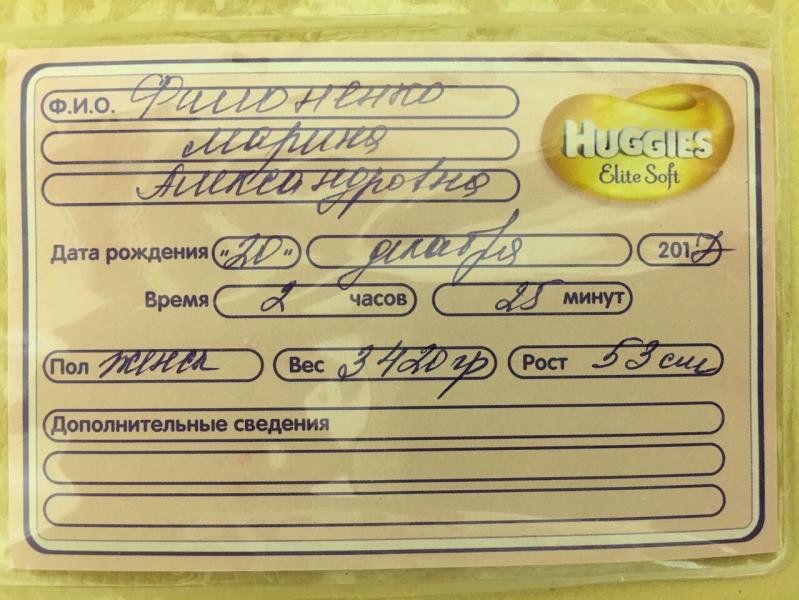 Ф.И.О. Филоненко
Марина
Александровна
HUGGIES
Elite Soft
Дата рождения "20" декабря 2017
Время 2 часов 25 минут
Пол женск Вес 3420 гр Рост 53 см
Дополнительные сведения